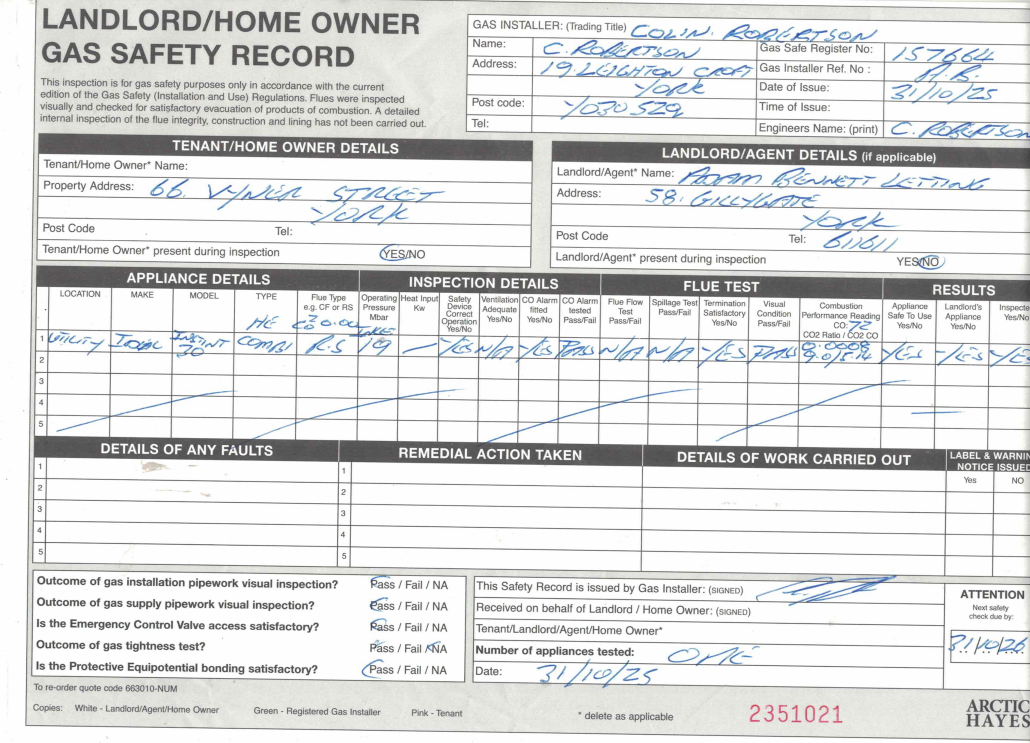 LANDLORD/HOME OWNER
GAS SAFETY RECORD
This inspection is for gas safety purposes only in accordance with the current
edition of the Gas Safety (Installation and Use) Regulations. Flues were inspected
visually and checked for satisfactory evacuation of products of combustion. A detailed
internal inspection of the flue integrity, construction and lining has not been carried out.
GAS INSTALLER: (Trading Title) COLIN. ROBERTSON
Name: C. ROBERTSON
Gas Safe Register No: 157664
Address: 19. LEIGHTON CROFT
Gas Installer Ref. No :
YORK
Date of Issue: 31/10/25
Post code: YO30 5Z9
Time of Issue:
Tel:
Engineers Name: (print) C. ROBERTSON
TENANT/HOME OWNER DETAILS
Tenant/Home Owner* Name:
Property Address: 66. VYNER STREET
YORK
Post Code Tel:
Tenant/Home Owner* present during inspection YES/NO
LANDLORD/AGENT DETAILS (if applicable)
Landlord/Agent* Name: ADAM BENNETT LETTING
Address: 58. GILLYGATE
YORK
Post Code Tel: 611611
Landlord/Agent* present during inspection YES/NO
APPLIANCE DETAILS INSPECTION DETAILS FLUE TEST RESULTS
LOCATION MAKE MODEL TYPE Flue Type e.g. CF or RS Operating Pressure Mbar Heat Input Kw Safety Device Correct Operation Yes/No Ventilation Adequate Yes/No CO Alarm fitted Yes/No CO Alarm tested Pass/Fail Flue Flow Test Pass/Fail Spillage Test Pass/Fail Termination Satisfactory Yes/No Visual Condition Pass/Fail Combustion Performance Reading CO: 72 CO2 Ratio / CO2 CO Appliance Safe To Use Yes/No Landlord's Appliance Yes/No Inspecte Yes/No
HE
1 UTILITY IDEAL 30 COMBI R.S 19 – YES N/A YES PASS N/A N/A YES PASS 0.0008 YES YES YE
2
3
4
5
DETAILS OF ANY FAULTS REMEDIAL ACTION TAKEN DETAILS OF WORK CARRIED OUT LABEL & WARNIN NOTICE ISSUED
Yes NO
1 1
2 2
3 3
4 4
5 5
Outcome of gas installation pipework visual inspection? Pass / Fail / NA
Outcome of gas supply pipework visual inspection? Pass / Fail / NA
Is the Emergency Control Valve access satisfactory? Pass / Fail / NA
Outcome of gas tightness test? Pass / Fail / NA
Is the Protective Equipotential bonding satisfactory? Pass / Fail / NA
This Safety Record is issued by Gas Installer: (SIGNED)
Received on behalf of Landlord / Home Owner: (SIGNED)
Tenant/Landlord/Agent/Home Owner*
Number of appliances tested: ONE
Date: 31/10/25
ATTENTION
Next safety
check due by:
31/10/26
To re-order quote code 663010-NUM
Copies: White - Landlord/Agent/Home Owner Green - Registered Gas Installer Pink - Tenant * delete as applicable 2351021
ARCTIC
HAYES